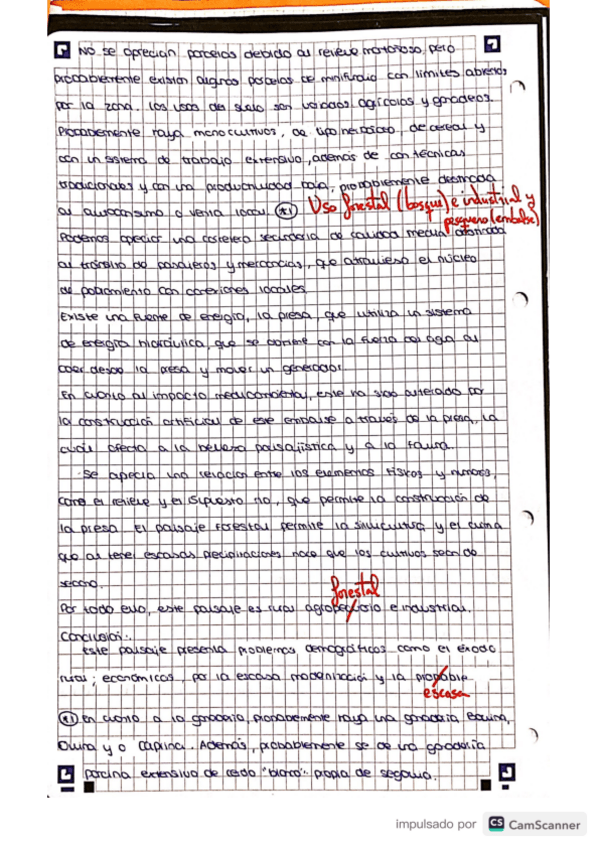 No se aprecian parcelas debido al relieve montañoso, pero
probablemente existan algunas parcelas de minifundio con límites abiertos
por la zona. Los usos del suelo son variados: agrícolas y ganaderos.
Probablemente haya monocultivos, de tipo herbáceo, de cereal y
con un sistema de trabajo extensivo, además de con técnicas
tradicionales y con una productividad baja, probablemente destinada
al autoconsumo o venta local. *1 Uso forestal (bosque) e industrial y
pesquero (embalse)
Podemos apreciar una carretera secundaria de calidad media destinada
al tránsito de pasajeros y mercancías, que atraviesa el núcleo
de poblamiento con conexiones locales.
Existe una fuente de energía, la presa, que utiliza un sistema
de energía hidráulica, que se obtiene con la fuerza del agua al
caer desde la presa y mover un generador.
En cuanto al impacto medioambiental, este ha sido alterado por
la construcción artificial de este embalse a través de la presa, la
cual afecta a la belleza paisajística y a la fauna.
Se apecia una relación entre los elementos físicos y humanos,
como el relieve y el supuesto río, que permite la construcción de
la presa. El paisaje forestal permite la silvicultura y el clima
que al tener escasas precipitaciones hace que los cultivos sean de
secano.
forestal
Por todo ello, este paisaje es rural agropecuario e industrial.
Conclusión:
Este paisaje presenta problemas demográficos como el éxodo
rural; económicos, por la escasa modernización y la probable
escasa
*1 En cuanto a la ganadería, probablemente haya una ganadería equina,
ovina y o caprina. Además, probablemente se dé una ganadería
porcina extensiva de cerdo "blanco" propia de Segovia.
impulsado por CS CamScanner